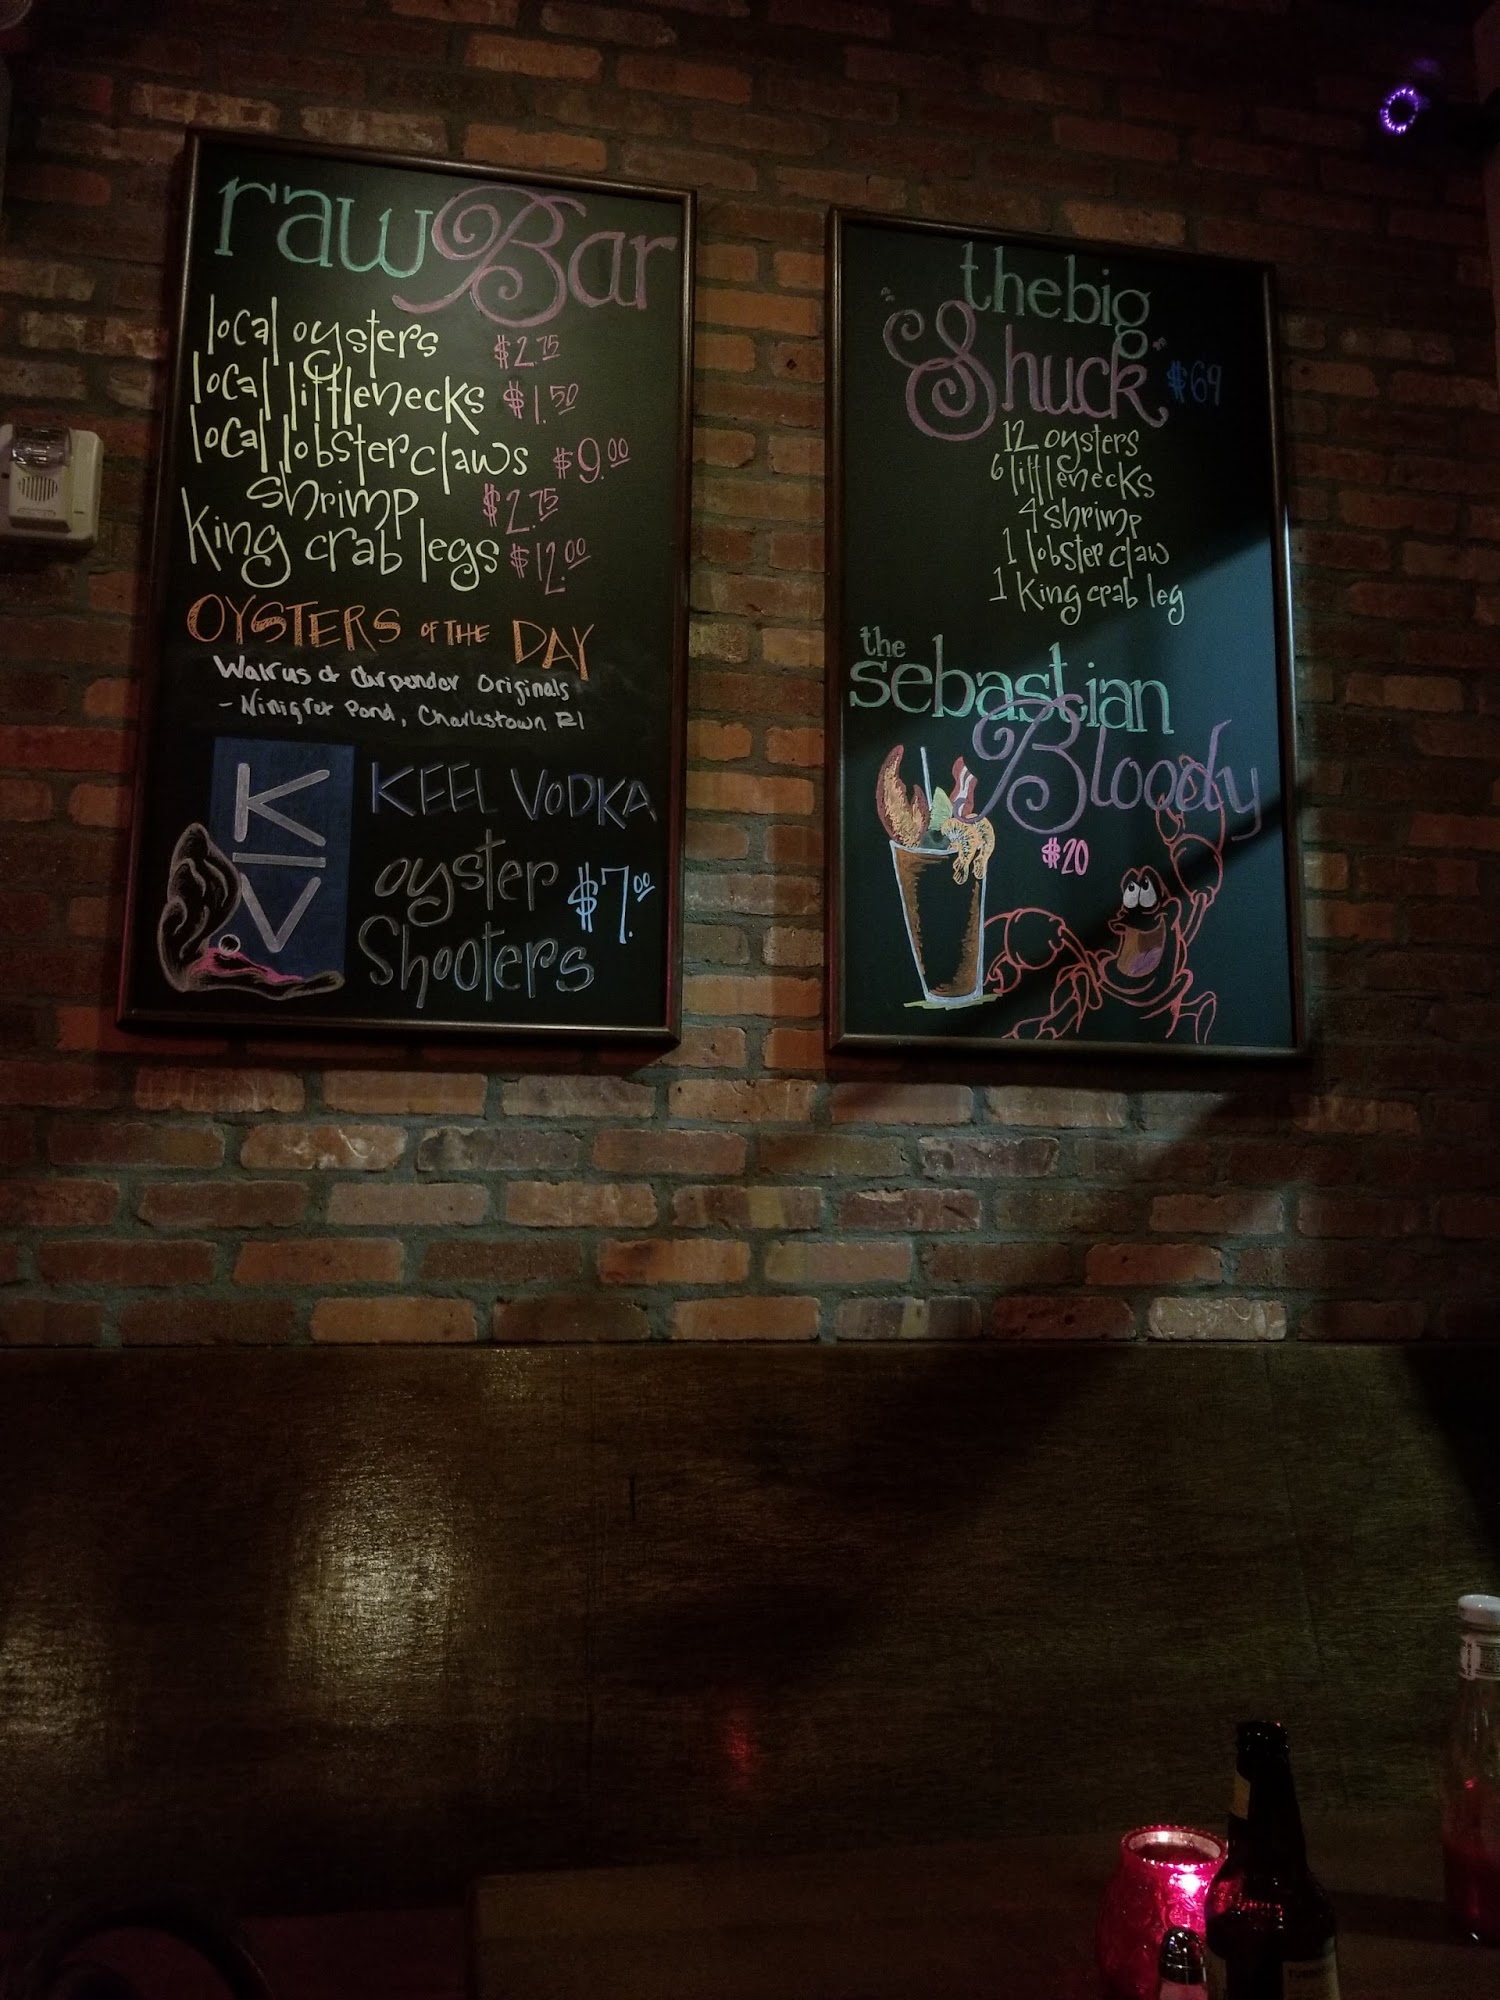 raw Bar
local oysters $2.75
local littlenecks $1.50
local lobster claws $9.00
shrimp $2.75
king crab legs $12.00
OYSTERS OF THE DAY
Walrus & Carpender Originals
- Ninigret Pond, Charlestown RI
KV
KEEL VODKA
oyster
Shooters
$7.00
the big
"Shuck" $69
12 oysters
6 littlenecks
4 shrimp
1 lobster claw
1 king crab leg
the
sebastian
Bloody
$20